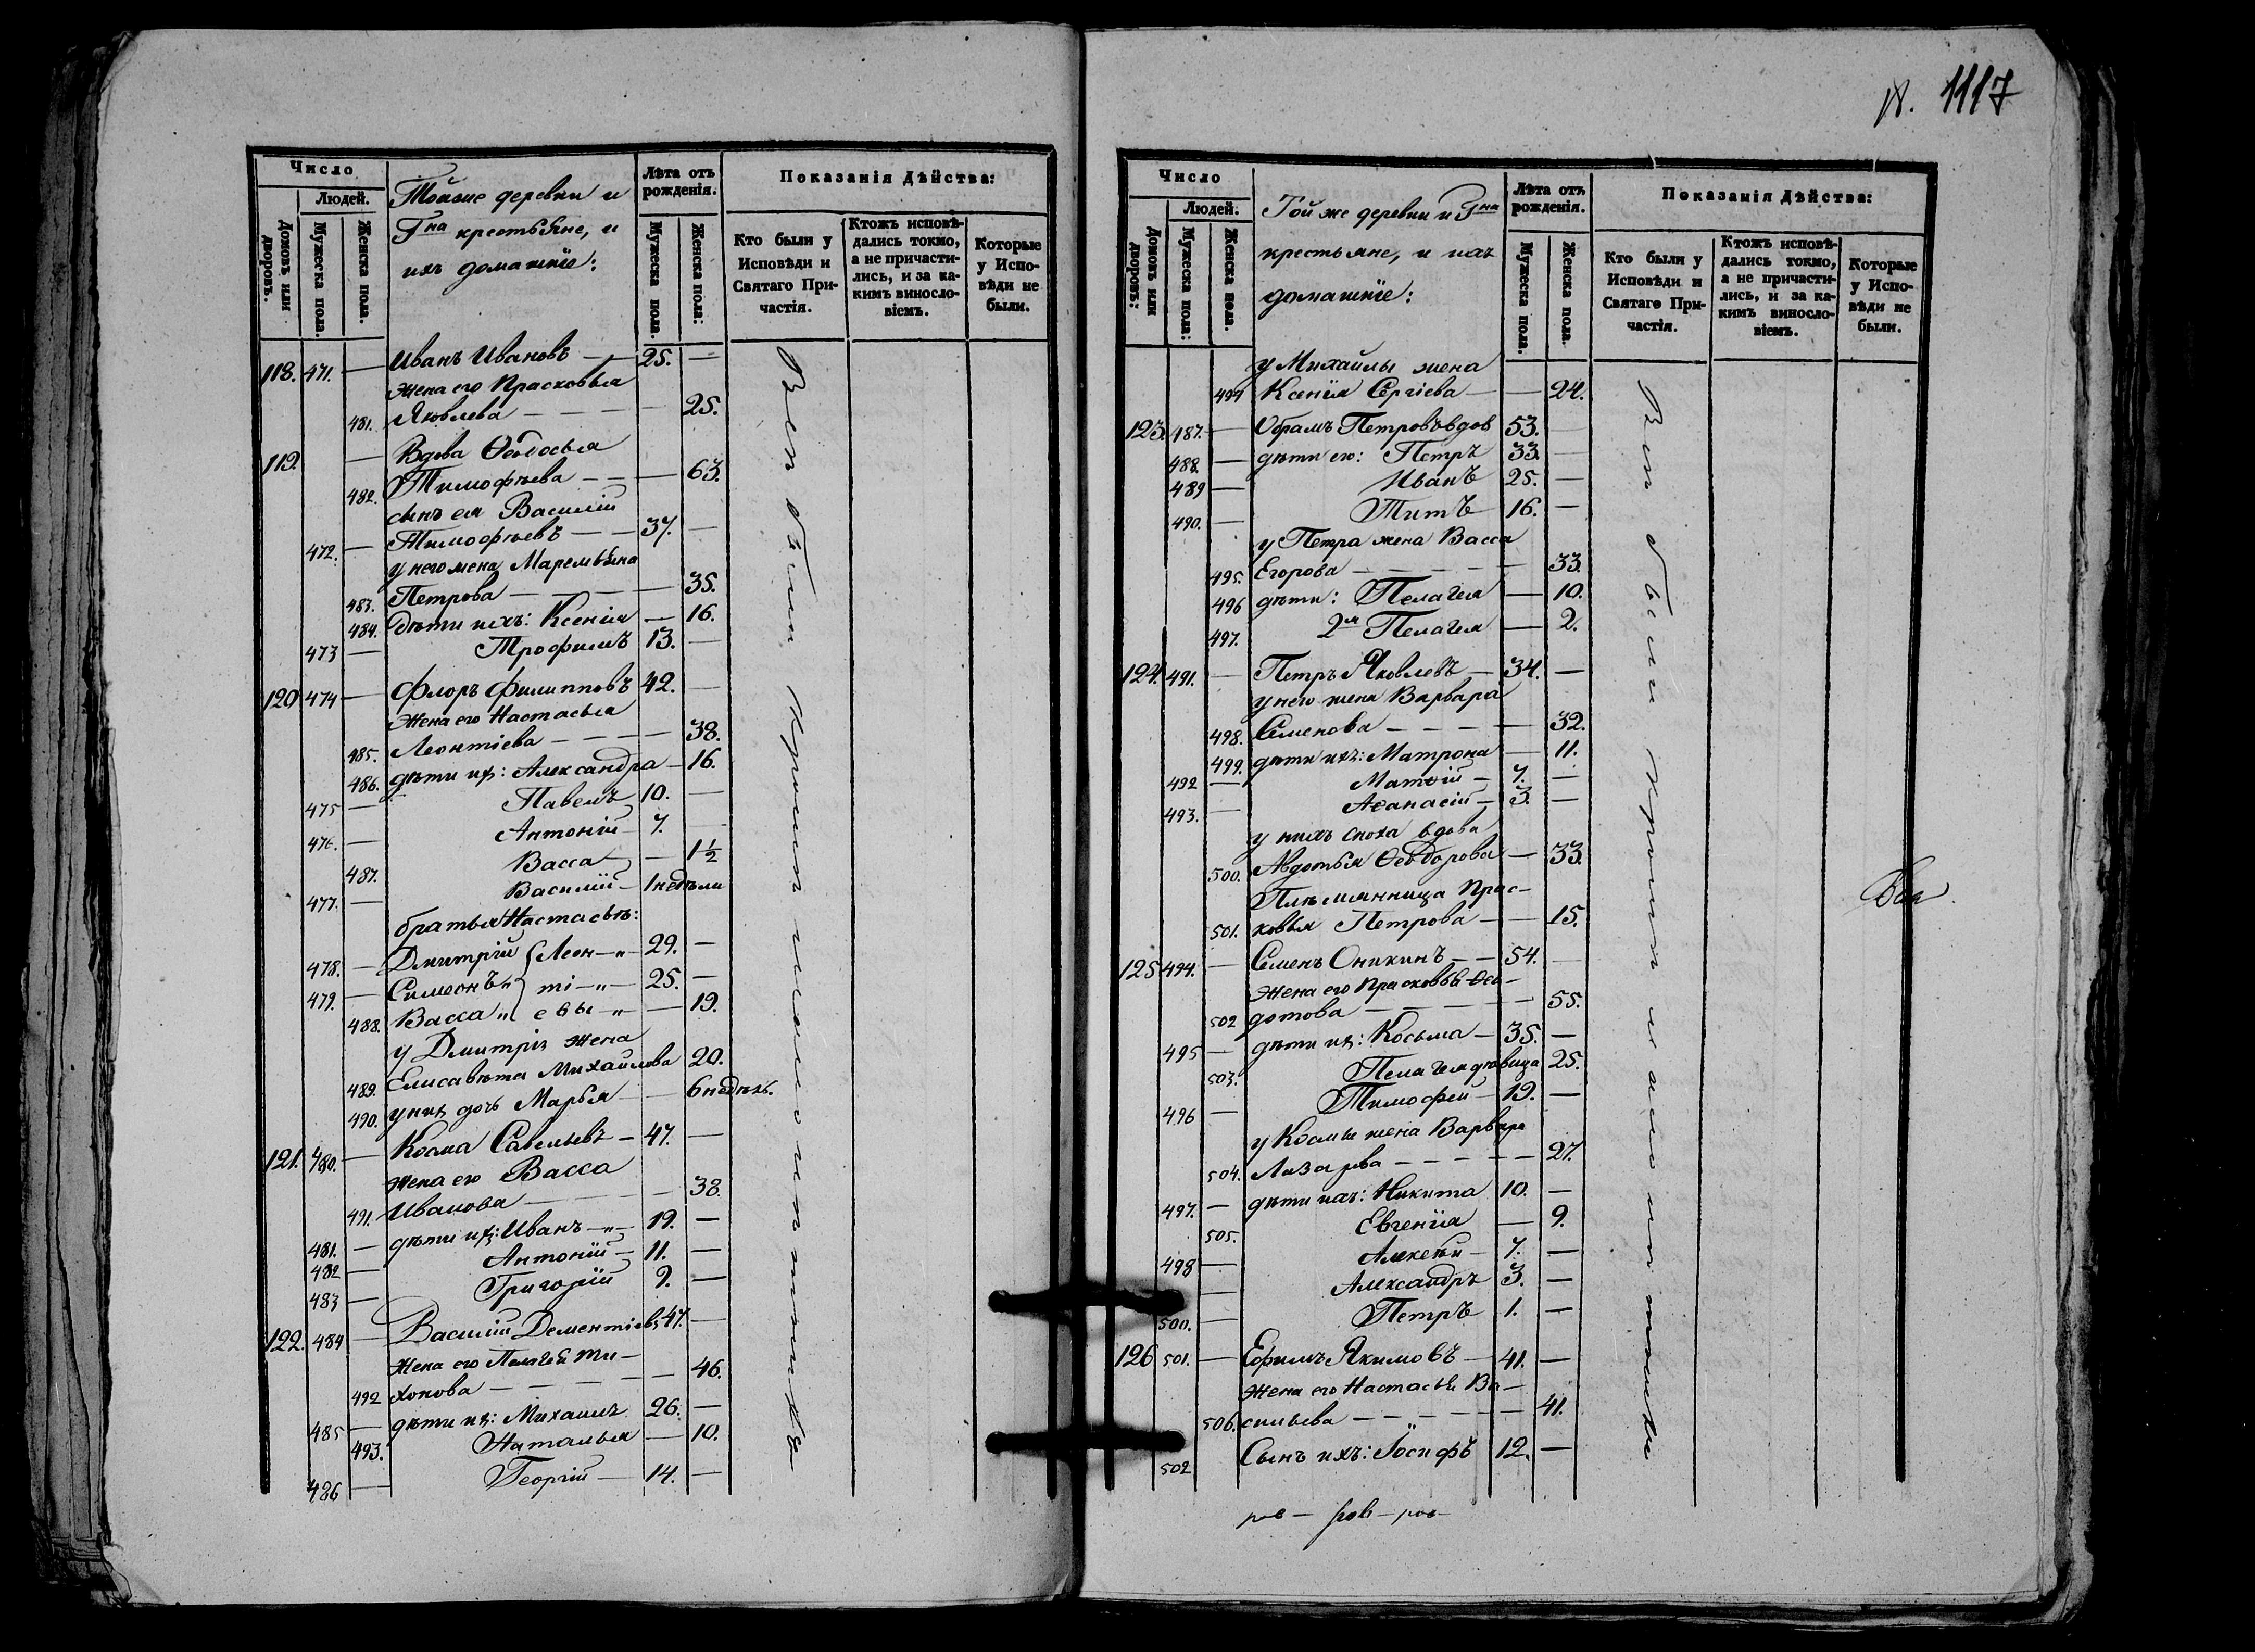 Число
Людей.
Домовъ или дворовъ.
Мужеска пола.
Женска пола.
Тойже деревни и
Гна крестьяне, и
ихъ домашніе:
Лѣта отъ рожденія.
Мужеска пола.
Женска пола:
Показанія Дѣйства:
Кто были у Исповѣди и Святаго Причастія.
Ктожъ исповѣдались токмо, а не причастились, и за какимъ винословіемъ.
Которые у Исповѣди не были.
118. 471. — Иванъ Ивановъ — 25. —
жена его Прасковья
481. Яковлева — — — — 25.
119. — Вдова Ѳеодосья
482. Тимофѣева — — — 63.
сынъ ея Василій
472. — Тимофѣевъ — — 37. —
у него жена Маремьяна
483. Петрова — — — 35.
484. дѣти ихъ: Ксенія — 16.
473 — Трофимъ 13. —
120 474 — Флоръ Филипповъ 42. —
Жена его Настасья
485. Леонтіева — — — — 38.
486. дѣти ихъ: Александра — 16.
475 — Павелъ 10. —
476. — Антоній — 7. —
487. Васса — — 1 1/2
477. — Василій — 1 недѣли
братья Настасьѣ:
478. — Дмитрій { Леон — „ — 29. —
479. — Симеонъ „ } ті — „ — 25. —
488. Васса „ { евы „ — 19.
у Дмитрія жена
489. Елисавета Михайлова 20.
490. у них дочь Марья — — 6 недѣль.
121. 480. — Козма Савельевъ — 47. —
жена его Васса
491. Иванова — — — 38.
481. — дѣти их: Иванъ — „ — 19. —
482 — Антоній — 11. —
483 — Григорій 9. —
122. 484 — Василій Дементіевъ 47. —
Жена его Пелагея Ти-
492 хонова — — — — — 46.
485 — дѣти их: Михаилъ 26. —
493. Наталья — 10.
486 — Георгій — 14. —
Вси были
1117
Число
Людей.
Домовъ или дворовъ:
Мужеска пола:
Женска пола.
Той же деревни и Гна
крестьяне, и ихъ
домашніе:
Лѣта отъ рожденія.
Мужеска пола.
Женска пола.
Показанія Дѣйства:
Кто были у Исповѣди и Святаго Причастія.
Ктожъ исповѣдались токмо, а не причастились, и за какимъ винословіемъ.
Которые у Исповѣди не были.
у Михайлы жена
494 Ксенія Сергіева — — 24.
123. 487. — Обрамъ Петровъ вдов 53. —
488. — дѣти его: Петръ 33. —
489 — Иванъ 25. —
490. — Титъ 16. —
у Петра жена Васса
495. Егорова — — — — — 33.
496 дѣти: Пелагея — 10.
497. 2я Пелагея — 2.
124. 491. — Петръ Яковлевъ — 34. —
у него жена Варвара
498. Семенова — — — — 32.
499. дѣти ихъ: Матрона — 11.
492 — Матѳій — 7. —
493. — Аѳанасій — 3. —
у нихъ сноха вдова
500. Авдотья Ѳеодорова — 33.
Племянница Прас-
501. ковья Петрова — — 15.
125 494. — Семенъ Оникинъ — — 54. —
Жена его Прасковья Ѳео-
502 дотова — — — — 55.
495 — дѣти их: Косьма — 35. —
503. Пелагея дѣвица 25.
496 — Тимофей — 19. —
у Козмы жена Варвара
504. Лазарева — — — — — 27.
497. — дѣти ихъ: Никита 10. —
505. Евгенія — 9.
498 — Алексѣй — 7. —
— Александръ 3. —
500. — Петръ 1. —
126 501. — Ефимъ Якимовъ — 41. —
Жена его Настасья Ва-
506. сильева — — — — — 41.
502 Сынъ ихъ: Іосифъ 12. —
Вси были